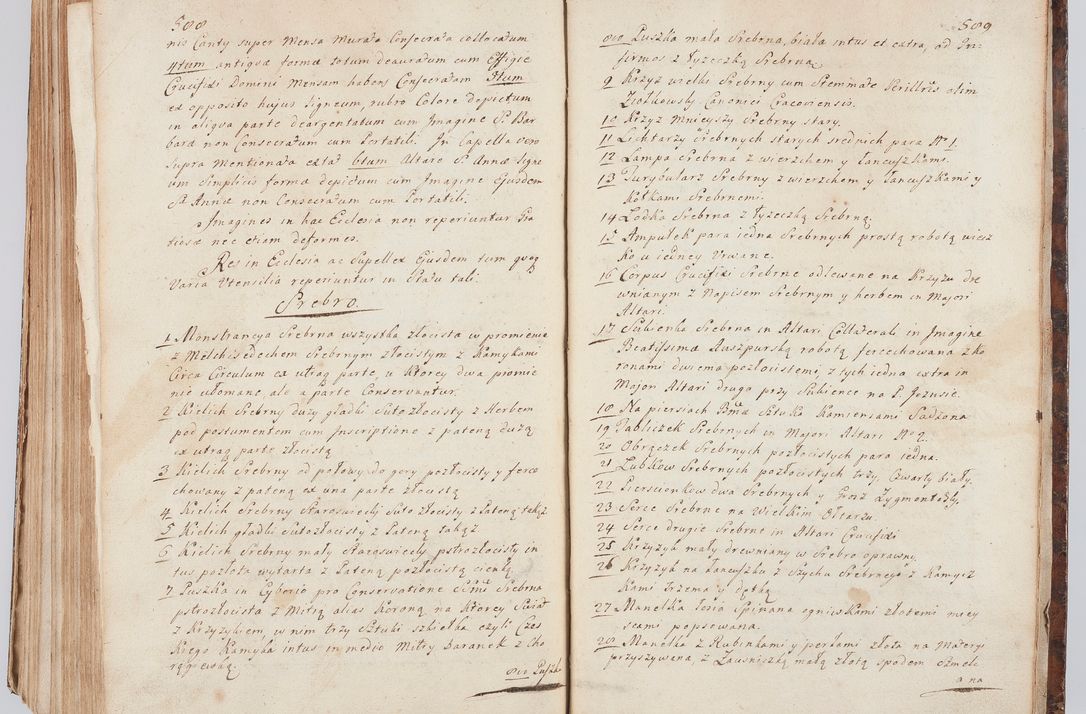 588
nis Canty super Mensa Murata Consecrata collocatum
4tum antiquæ formæ totum deauratum cum Effigie
Crucifixi Domini Mensam habens Consecratam 5tum
ex opposito hujus ligneum, rubro Colore depictum
in aliqua parte deargentatum cum Imagine S. Bar
bara non Consecratum cum Portatili. In Capella vero
supra Mentionata extat 6tum Altare S. Annæ ligne
um Simplicis formæ depictum cum Imagine Ejusdem
S. Annæ non Consecratum cum Portatili.
Imagines in hac Ecclesia non reperiuntur Gra
tiosæ nec etiam deformes.
Res in Ecclesia ac Supellex Ejusdem tum quoq
Varia Utensilia reperiuntur in Statu tali.
Srebro.
1 Monstrancya Srebrna wszystka złocista w promienie
z Melchisedechem Srebrnym złocistym z Kamykami
Circa Circulum ex utraq parte, u ktorey dwa promie
nie ułomane, ale a parte Conservantur.
2 Kielich Srebrny duży gładki suto złocisty z Herbem
pod postumentem cum Inscriptione z pateną dużą
ex utraq parte złocistą
3 Kielich Srebrny od połowy do gory pozłocisty y ferce
chowany z pateną ex una parte złocistą
4 Kielich Srebrny Staroswiecki suto złocisty z Pateną takąż
5 Kielich gładki suto złocisty z Pateną takąż
6 Kielich Srebrny mały Staroswiecki pstrozłocisty in
tus pozłota wytarta z Pateną pozłocistą cienką
7 Puszka in Cyborio pro Conservatione SSmi Srebrna
pstrozłocista z Mitrą alias Koroną na ktorey Swiat
z Krzyżykiem, w nim trzy Sztuki szkiełka czyli Czes
kiego Kamyka intus in medio Mitry Baranek z Cho
rągiewką.
8vo Puszka
589
8vo Puszka mała Srebrna, biała intus et extra, ad In-
firmos z łyżeczką Srebrną
9 Krzyż wielki Srebrny cum Stemmate olim
Ziołkowsky Canonici Cracoviensis.
10 Krzyż Mnieyszy Srebrny stary.
11 Lichtarzy Srebrnych starych srednich para No 1.
12 Lampa Srebrna z wierzchem y łancuszkami.
13 Turybularz Srebrny z wierzchem y łancuszkami y
kołkami Srebrnemi.
14 Lodka Srebrna z łyżeczką Srebrną.
15 Ampułek para iedna Srebrnych prostą robotą wiecz
ko u iedney Urwane.
16 Corpus Crucifixi Srebrne odlewane na Krzyżu dre
wnianym z Napisem Srebrnym y herbem in Majori
Altari.
17 Sukienka Srebrna in Altari Collaterali in Imagine
Beatissimæ Auszpurską robotą fercechowana z ko
ronami dwiema pozłocistemi, z tych iedna extra in
Majori Altari druga przy Sukience na P. Jezusie.
18 Na piersiach Bmæ Sztuka Kamieniami Sadzona
19 Tabliczek Srebrnych in Majori Altari No 2.
20 Obrączek Srebrnych pozłocistych para iedna.
21 Lubkow Srebrnych pozłocistych trzy, Czwarty biały.
22 Pierscionkow dwa Srebrnych y Grosz Zygmontosky,
23 Serce Srebrne na Wielkim Ołtarzu.
24 Serce drugie Srebrne in Altari Crucifixi
25 Krzyżyk mały drewniany w Srebro oprawny.
26 Krzyżyk na łancuszku z Szychu Srebrnego z Kamycz
kami trzema y dętką
27 Manelka Spinana ogniwkami złotemi miey
scami popsowana.
28 Manelka z Rubinkami y perłami złota na Materyi
przyszywena, z Zausniczką małą złotą spodem szmel
a na